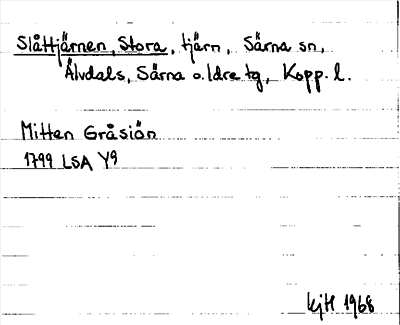 Slåttjärnen, Stora, tjärn, Särna sn,
Älvdals, Särna o. Idre tg, Kopp. l.
Mitten Gråsiön
1799 LSA Y9
kjH 1968